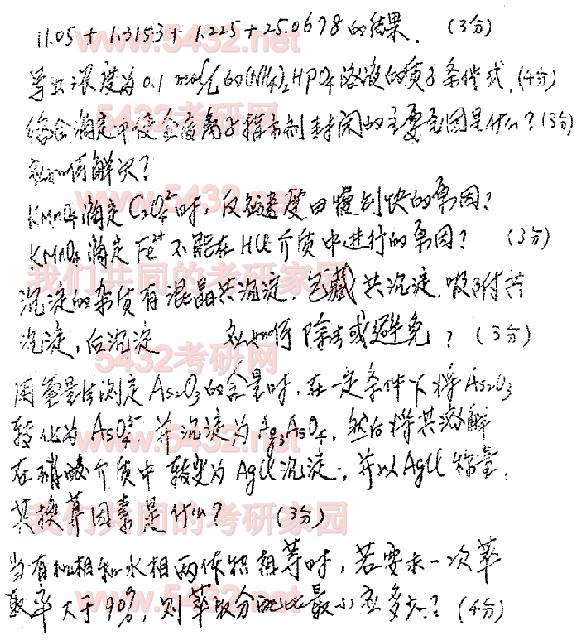 11.05 + 1.3153 + 1.225 + 25.0678 的结果. (3分)
www.5432.net
写出浓度为 0.1 mol/L 的 (NH4)2HPO4 溶液的质子条件式. (4分)
5432考研网
络合滴定中使金属离子指示剂封闭的主要原因是什么? (3分)
应如何解决?
www.5432.net
KMnO4 滴定 C2O4²⁻ 时, 反应速度由慢到快的原因?
KMnO4 滴定 Fe²⁺ 不能在 HCl 介质中进行的原因? (3分)
我们共同的考研家园
沉淀的杂质有混晶共沉淀. 包藏共沉淀. 吸附共
沉淀, 后沉淀 应如何除去或避免? (3分)
5432考研网
用重量法测定 As2O3 的含量时, 在一定条件下将 As2O3
转化为 AsO4³⁻ 并沉淀为 Ag3AsO4, 然后将其溶解
www.5432.net
在硝酸介质中 转变为 AgCl 沉淀, 并以 AgCl 称量.
其换算因素是什么? (3分)
我们共同的考研家园
当有机相和水相两体积相等时, 若要求一次萃
取率大于 90%, 则萃取分配比最小应多少? (4分)
www.5432.net